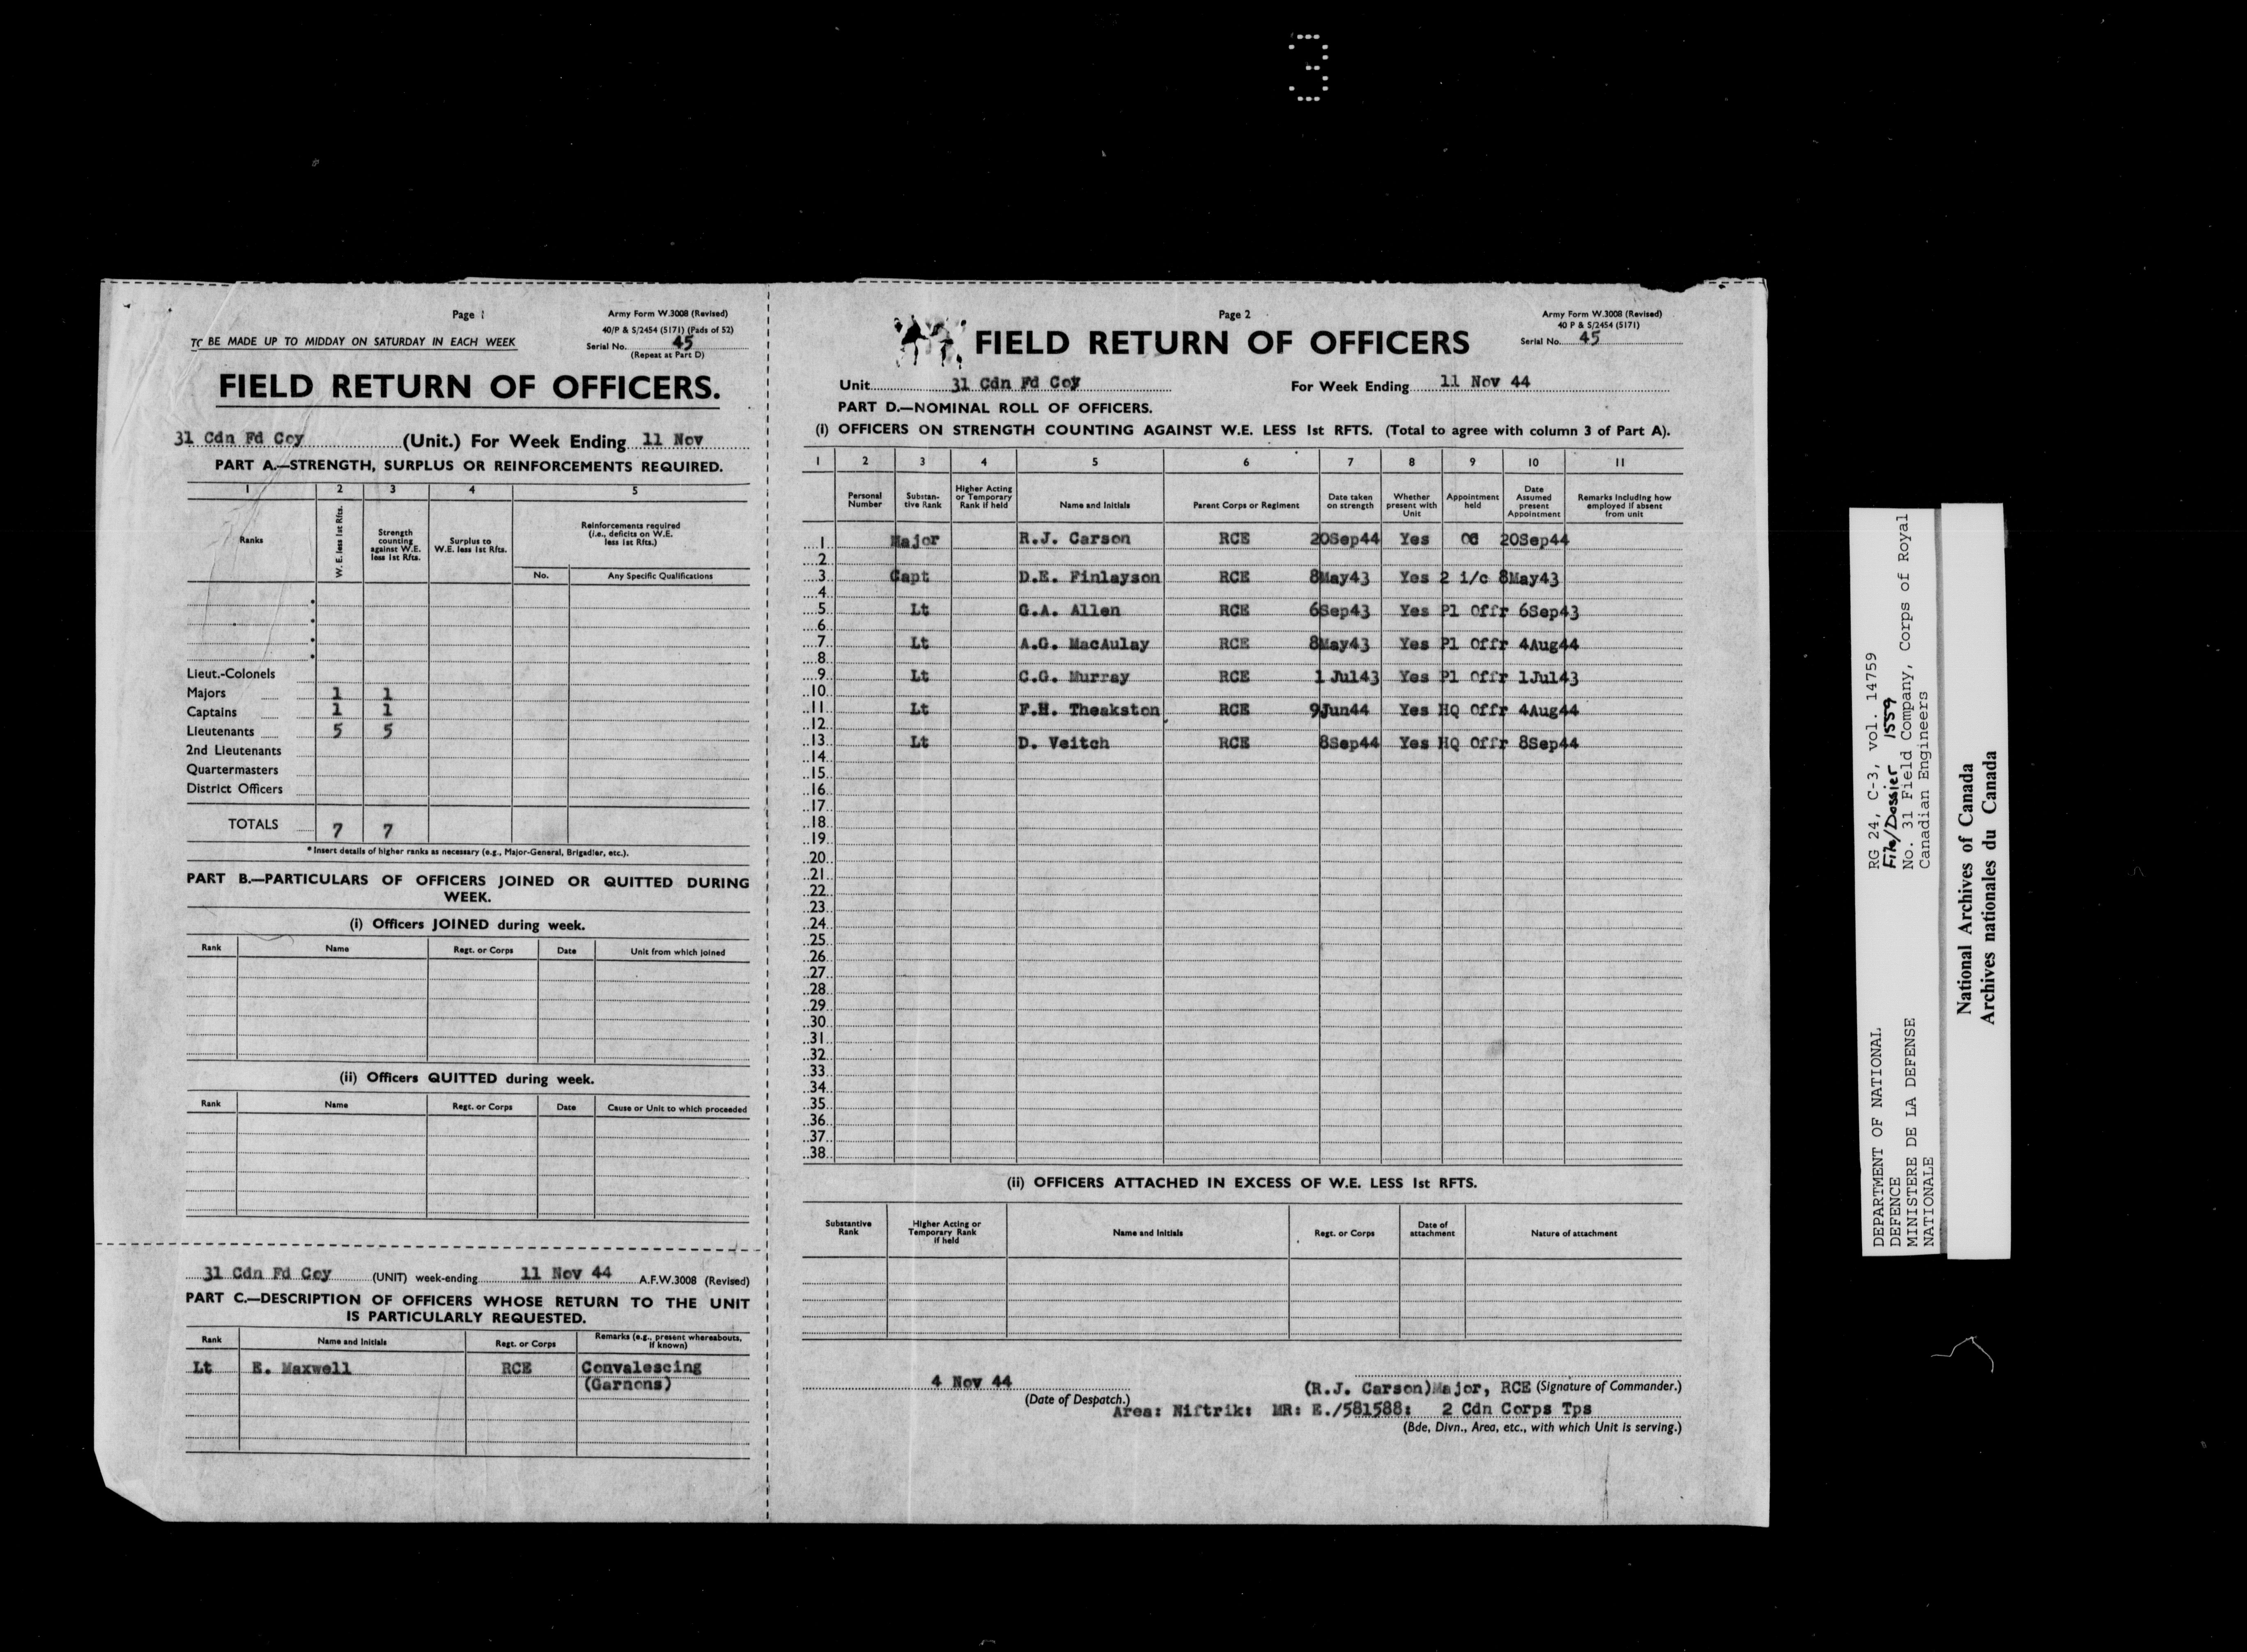 3
Page 1
Army Form W.3008 (Revised)
40/P & S/2454 (5171) (Pads of 52)
TO BE MADE UP TO MIDDAY ON SATURDAY IN EACH WEEK
Serial No. 45
(Repeat at Part D)
FIELD RETURN OF OFFICERS.
31 Cdn Fd Coy (Unit.) For Week Ending 11 Nov
PART A.—STRENGTH, SURPLUS OR REINFORCEMENTS REQUIRED.
1 2 3 4 5
Ranks
W. E. less 1st Rfts.
Strength counting against W.E. less 1st Rfts.
Surplus to W.E. less 1st Rfts.
Reinforcements required (i.e., deficits on W.E. less 1st Rfts.)
No. Any Specific Qualifications
Lieut.-Colonels
Majors 1 1
Captains 1 1
Lieutenants 5 5
2nd Lieutenants
Quartermasters
District Officers
TOTALS 7 7
* Insert details of higher ranks as necessary (e.g., Major-General, Brigadier, etc.).
PART B.—PARTICULARS OF OFFICERS JOINED OR QUITTED DURING
WEEK.
(i) Officers JOINED during week.
Rank Name Regt. or Corps Date Unit from which joined
(ii) Officers QUITTED during week.
Rank Name Regt. or Corps Date Cause or Unit to which proceeded
31 Cdn Fd Coy (UNIT) week-ending 11 Nov 44 A.F.W.3008 (Revised)
PART C.—DESCRIPTION OF OFFICERS WHOSE RETURN TO THE UNIT
IS PARTICULARLY REQUESTED.
Rank Name and Initials Regt. or Corps Remarks (e.g., present whereabouts, if known)
Lt E. Maxwell RCE Convalescing
(Garnons)
Page 2
Army Form W.3008 (Revised)
40 P & S/2454 (5171)
Serial No. 45
FIELD RETURN OF OFFICERS
Unit 31 Cdn Fd Coy For Week Ending 11 Nov 44
PART D.—NOMINAL ROLL OF OFFICERS.
(i) OFFICERS ON STRENGTH COUNTING AGAINST W.E. LESS 1st RFTS. (Total to agree with column 3 of Part A).
1 2 3 4 5 6 7 8 9 10 11
Personal Number
Substantive Rank
Higher Acting or Temporary Rank if held
Name and Initials
Parent Corps or Regiment
Date taken on strength
Whether present with Unit
Appointment held
Date Assumed present Appointment
Remarks including how employed if absent from unit
1 Major R.J. Carson RCE 20Sep44 Yes OC 20Sep44
2
3 Capt D.E. Finlayson RCE 8May43 Yes 2 i/c 8May43
4
5 Lt G.A. Allen RCE 6Sep43 Yes Pl Offr 6Sep43
6
7 Lt A.G. MacAulay RCE 8May43 Yes Pl Offr 4Aug44
8
9 Lt C.G. Murray RCE 1 Jul43 Yes Pl Offr 1Jul43
10
11 Lt F.H. Theakston RCE 9Jun44 Yes HQ Offr 4Aug44
12
13 Lt D. Veitch RCE 8Sep44 Yes HQ Offr 8Sep44
14
15
16
17
18
19
20
21
22
23
24
25
26
27
28
29
30
31
32
33
34
35
36
37
38
(ii) OFFICERS ATTACHED IN EXCESS OF W.E. LESS 1st RFTS.
Substantive Rank Higher Acting or Temporary Rank if held Name and Initials Regt. or Corps Date of attachment Nature of attachment
4 Nov 44
(Date of Despatch.)
(R.J. Carson)Major, RCE (Signature of Commander.)
Area: Niftrik: MR: E./581588: 2 Cdn Corps Tps
(Bde, Divn., Area, etc., with which Unit is serving.)
DEPARTMENT OF NATIONAL
DEFENCE
MINISTERE DE LA DEFENSE
NATIONALE
RG 24, C-3, vol. 14759
File/Dossier 1559
No. 31 Field Company, Corps of Royal
Canadian Engineers
National Archives of Canada
Archives nationales du Canada